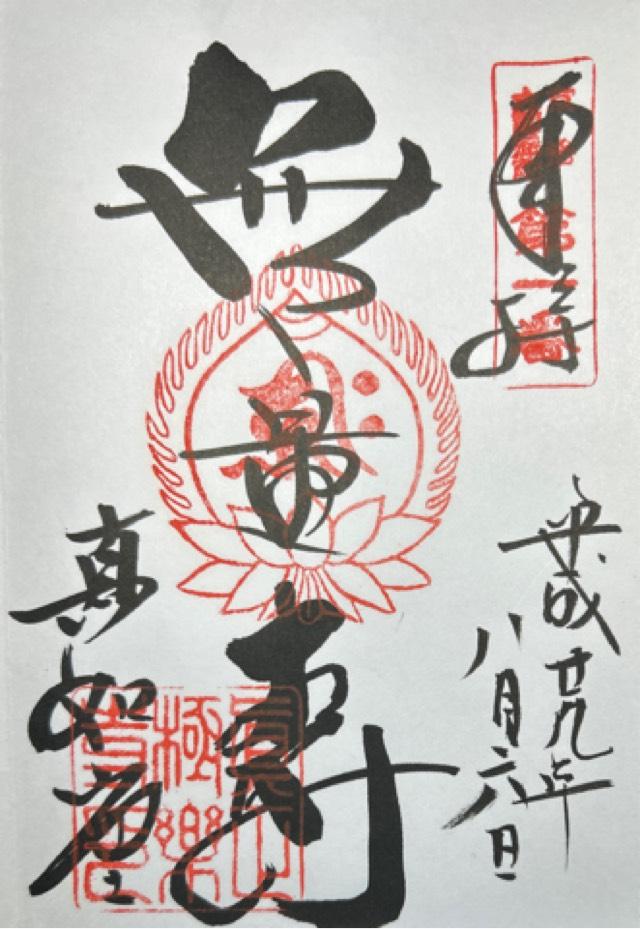 奉拝
平成廿九年
八月六日
無量寿
真如堂
極樂